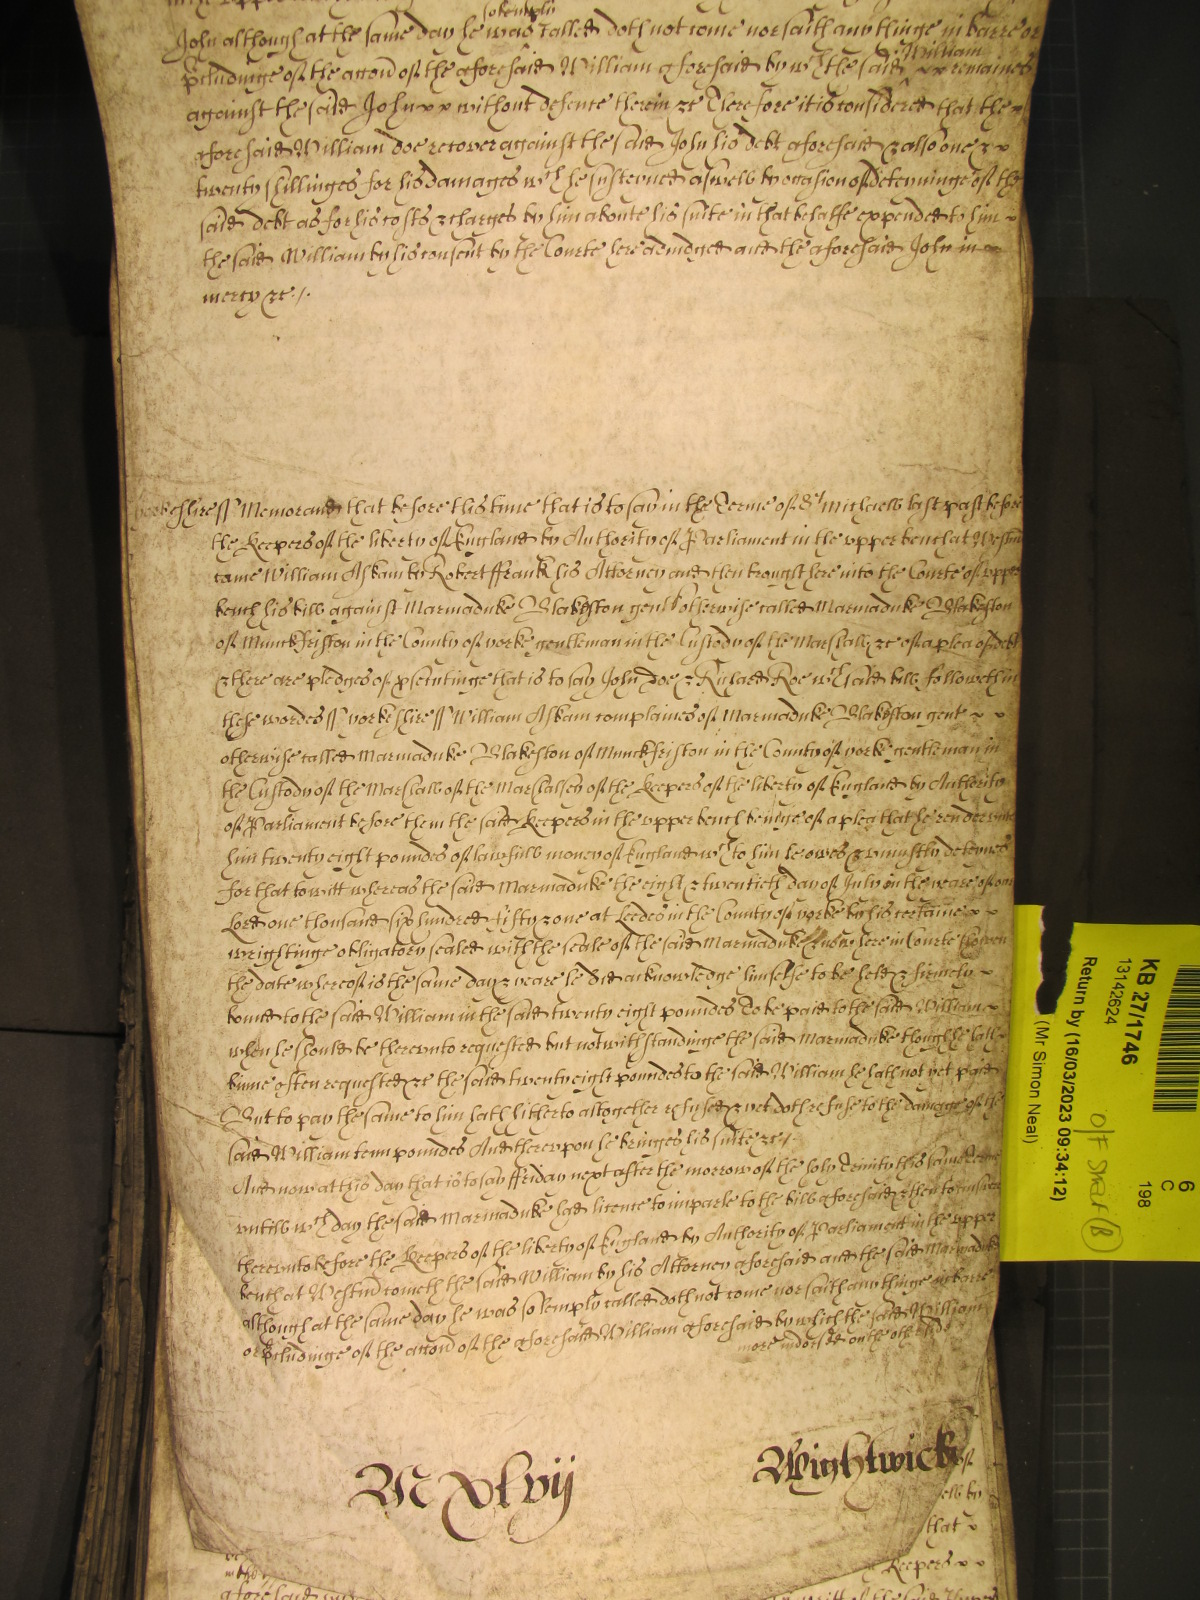 solemply
John although at the same day he was called doth not come nor saith any thinge in barre or
William
pcludinge of the accon of the aforesaid William aforesaid by wch the said remaines
against the said John x x without defence therein &c Therefore it is considered that the
aforesaid William doe recover against the said John his debt aforesaid & also one &
twenty shillinges for his damages wch he susteyned aswell by occasion of deteyninge of the
said debt as for his costs & charges by him aboute his suite in that behalfe expended to him
the said William by his consent by the Courte here adiudged and the aforesaid John in
mercy &c
Yorkeshire ss Memorand that before this time that is to say in the Terme of St Michaell last past before
the Keepers of the liberty of England by Authority of Parliament in the upper bench at Westm
came William Askam by Robert ffrank his Attorney and then brought here into the Courte of upper
bench his bill against Marmaduke Blakeston gent otherwise called Marmaduke Blakeston
of Munckfriston in the County of yorke gentleman in the Custody of the Marshall &c of a plea of debt
& there are pledges of psecutinge that is to say John Doe & Richard Roe wch said bill followeth in
these wordes ss yorkeshire ss William Askam complaines of Marmaduke Blakeston gent
otherwise called Marmaduke Blakeston of Munckfriston in the County of yorke gentleman in
the Custody of the Marshall of the Marshalsey of the Keepers of the liberty of England by Authority
of Parliament before them the said Keepers in the upper bench beinge of a plea that he render unto
him twenty eight poundes of lawfull money of England wch to him he owes & uniustly deteynes
for that to witt whereas the said Marmaduke the eight & twentieth day of July in the yeare of our
Lord one thousand six hundred fifty & one at Leedes in the County of yorke by his certaine
wrightinge obligatory sealed with the seale of the said Marmaduke & now here in Courte showen
the date whereof is the same day & yeare he did acknowledge himselfe to be held & firmely
bound to the said William in the said twenty eight poundes To be paid to the said William
when he should be thereunto requested but notwithstandinge the said Marmaduke though he hath
binne often requested &c the said twenty eight poundes to the said William he hath not yet paid
But to pay the same to him hath hitherto altogether refused & yet doth refuse to the damage of the
said William tenn poundes And thereupon he bringes his suite &c
And now at this day that is to say ffriday next after the morrow of the holy Trinity this same Terme
untill wch day the said Marmaduke had licence to imparle to the bill aforesaid & then to answere
thereunto before the Keepers of the liberty of England by Authority of Parliament in the upper
bench at Westm cometh the said William by his Attorney aforesaid and the said Marmaduke
although at the same day he was solemply called doth not come nor saith any thinge in barre
or pcludinge of the accon of the aforesaid William aforesaid by which the said William
more indorsed on the other side
M xlvij
Wightwick
ell by
that
Keepers
KB 27/1746
13142624
Return by (16/03/2023 09:34:12)
(Mr Simon Neal)
6
C
198